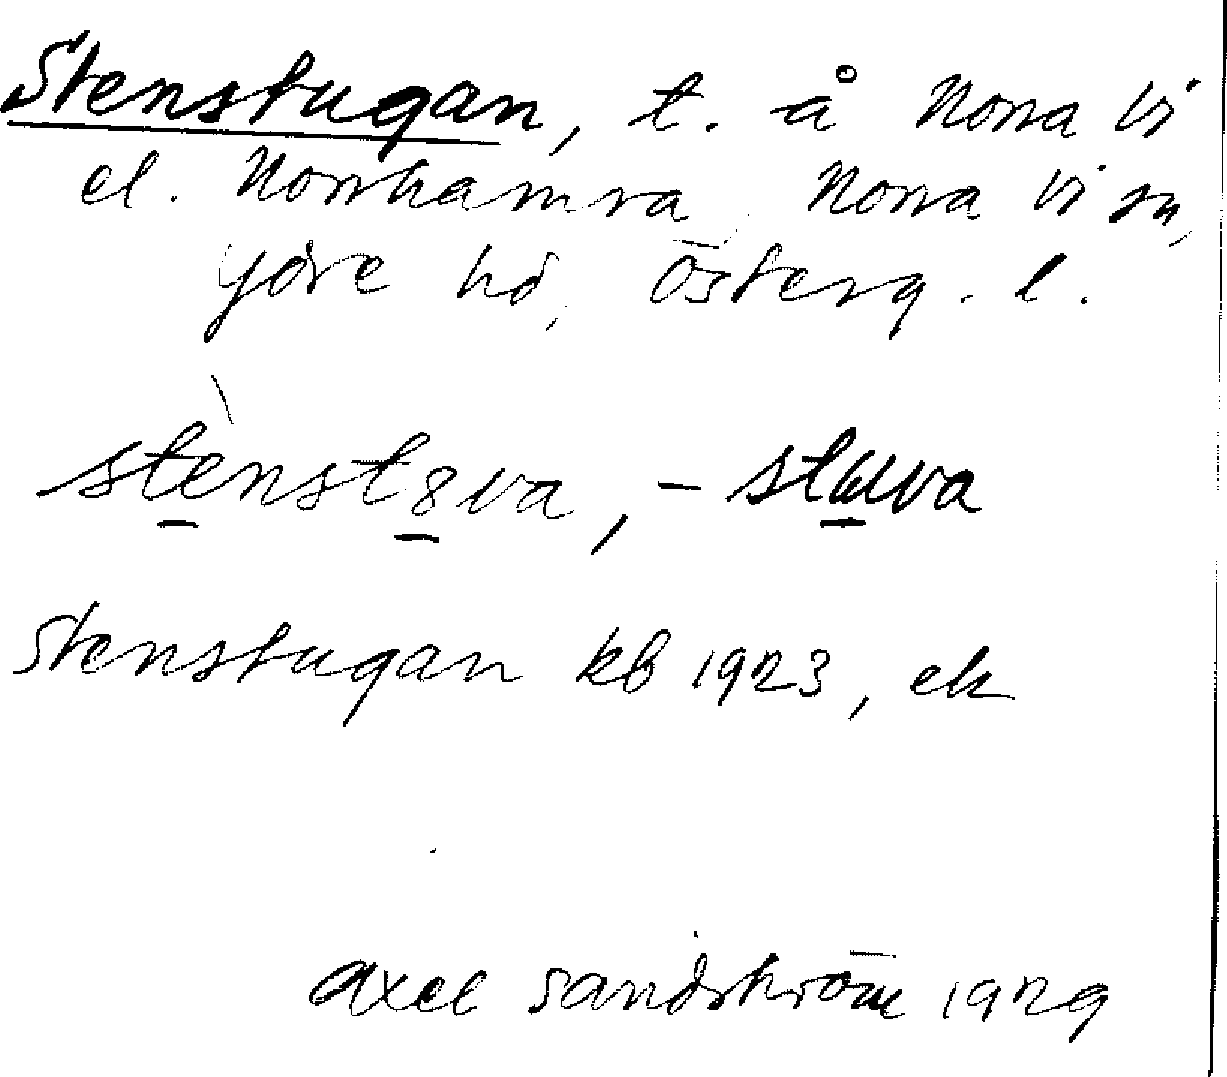 Stenstugan, t. å Norra Vi
el. Norrhamra, Norra Vi sn,
Ydre hd, Österg. l.
stènst8va, - stuva
Stenstugan kb 1923, ek
Axel Sandström 1929